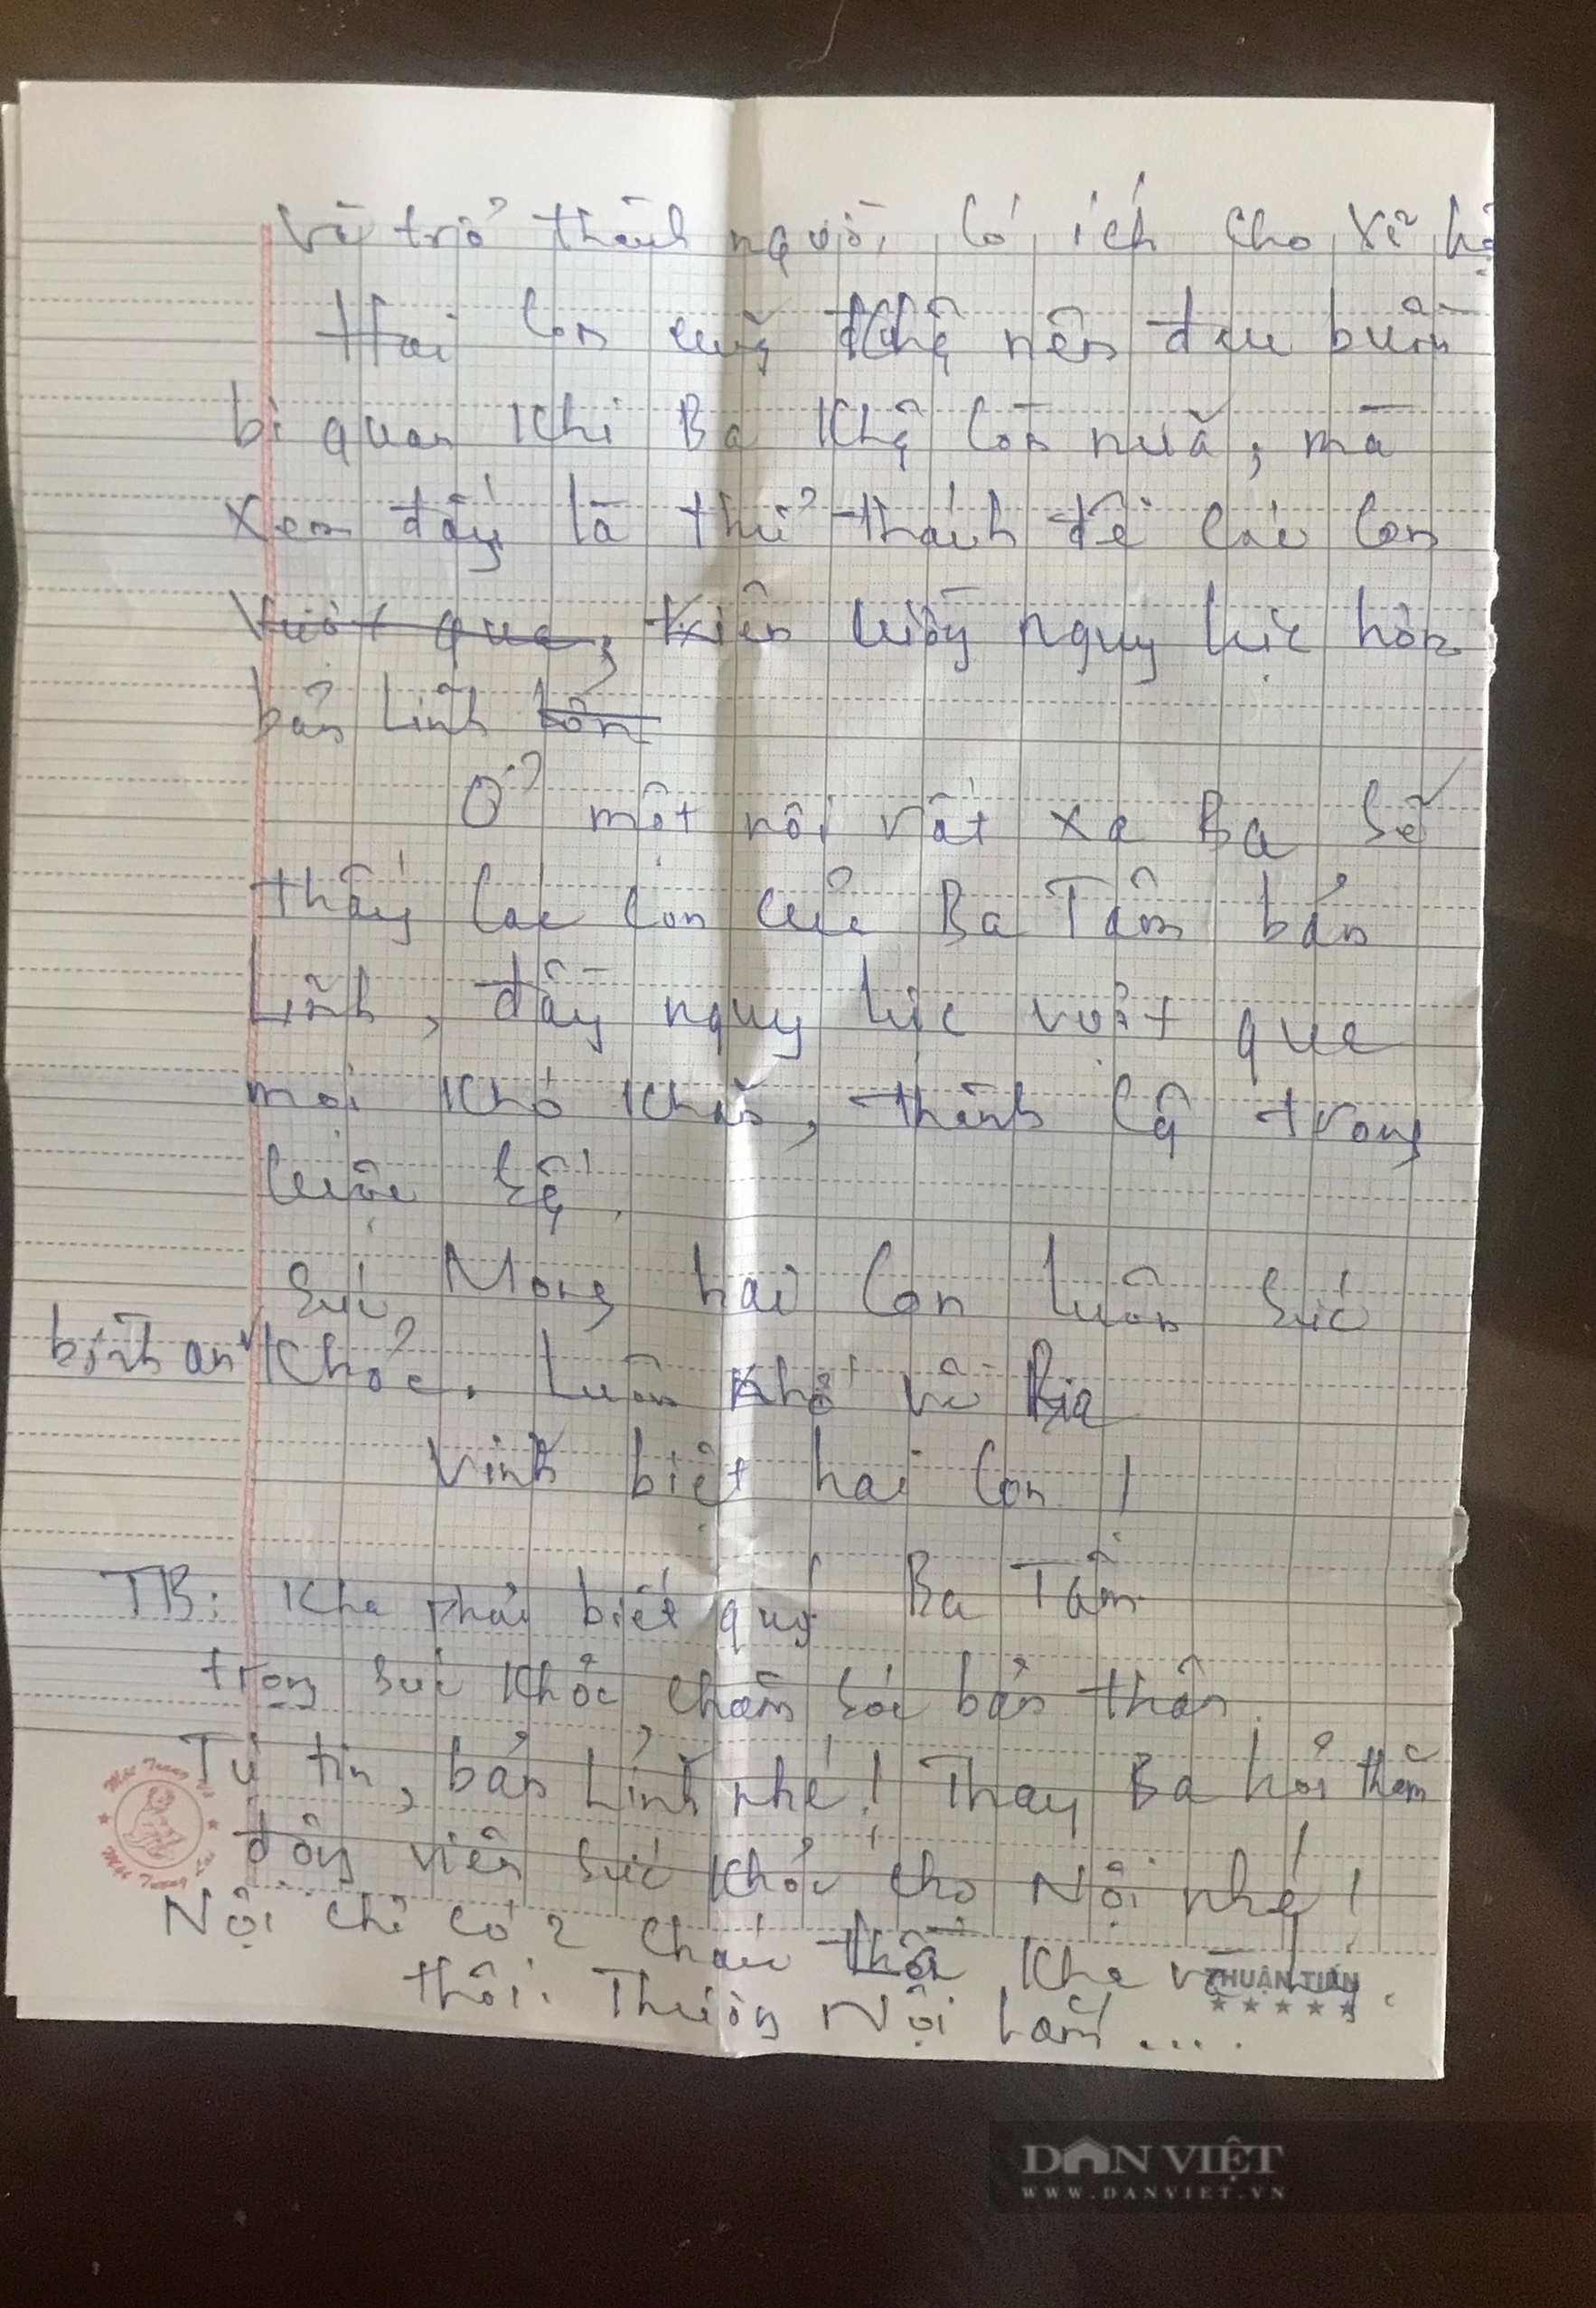 và trở thành người có ích cho xã hộ
Hai con cũng đừng nên đau buồn
bi quan khi Ba không còn nữa, mà
xem đấy là thử thách để các con
vượt qua, kiên cường nghị lực hơn
bản lĩnh hơn
Ở một nơi rất xa Ba sẽ
thấy các con của Ba Tâm bản
lĩnh, đầy nghị lực vượt qua
mọi khó khăn, thành công trong
cuộc sống.
Mong hai con luôn sức
bình an khỏe. Luôn nhớ về Ba
Vĩnh biệt hai con!
Ba Tâm
TB: Kha phải biết quý
trọng sức khỏe, chăm sóc bản thân.
Tự tin, bản lĩnh nhé! Thay Ba hỏi thăm
động viên sức khỏe cho Nội nhé!
Nội chỉ có 2 cháu Kha
thôi. Thương Nội lắm....
THUẬN TIẾN
DÂN VIỆT
WWW.DANVIET.VN